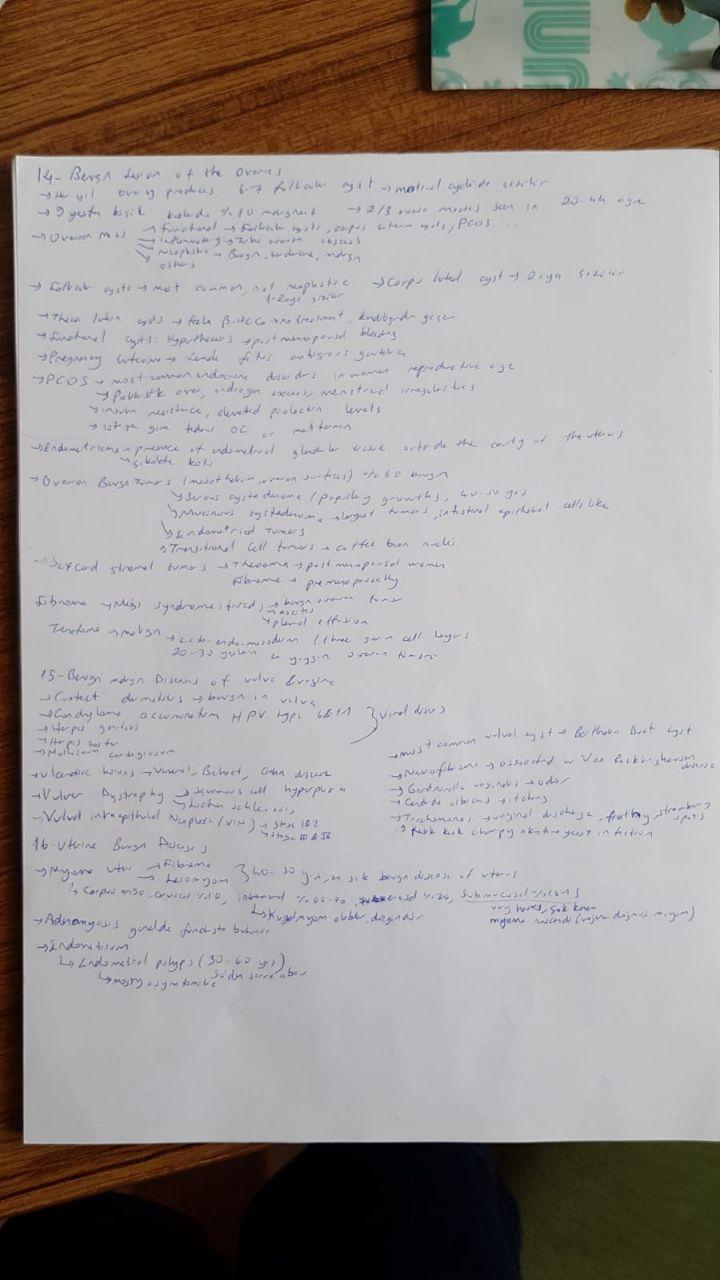 UNI
14- Benign Lesion of the Ovaries
→ Her yıl ovary produces 6-7 follicular cyst →
→ 9 yaştan küçük %80 malignant → 2/3 ovarian masses seen in 20-44 age
→ Ovarian Mass → Functional → Follicular cysts, corpus luteum cysts, PCOS ...
→ Inflammatory → Tubo ovarian abscess
→ Neoplastic → Benign, borderline, malign
→ others
→ Follicular cysts → most common, not neoplastic → Corpus luteal cyst →
→ Theca lutein cysts → fazla B-HCG → no treatment, kendiliğinden geçer
→ Functional cysts: → postmenopausal bleeding
→ Pregnancy luteoma → female fetus ambigious genitalia
→ PCOS → most common endocrine disorders in women reproductive age
→ Polikistik over, androgen excess, menstrual irregularities
→ insulin resistance, elevated prolactin levels
→ tedavi OC or metformin
→ Endometrioma → presence of endometrial glandular tissue outside the cavity of the uterus
→ çikolata kisti
→ Ovarian Benign Tumors (mesothelium, ovarian surfaces) %60 benign
→ Serous cystadenoma (papillary growths, 40-50 yaş
→ Mucinous cystadenoma → largest tumors, intestinal epithelial cells like
→ Endometrioid Tumors
→ Transitional Cell tumors → coffee bean nuclei
→ Sexcord stromal tumors → Thecoma → postmenopausal women
Fibroma → premenopausally
Fibroma → Meigs syndrome (triad) → benign ovarian tumor
→ ascites
→ pleural effusion
Teratoma → malign → ecto-endo-mesoderm (three germ cell layers
20-30 en yaygın ovarian
15- Benign malign Diseases of vulva & vagina
→ Contact dermatitis → benign in vulva
→ Condyloma accuminatum HPV type 6&11 } viral diseases
→ Herpes genitalis
→ Herpes zoster
→ Molluscum contagiosum
→ Ulcerative lesions → Venereal, Behcet, Crohn disease
→ Vulvar Dystrophy → Squamous cell hyperplasia
→ Lichen sclerosis
→ Vulval intraepithelial Neoplasia (VIN) → Stage 1&2
→ Stage III & IV
→ most common vulval cyst → Bartholin Duct cyst
→ Neurofibroma → associated w Von Recklinghausen disease
→ Gardnerella vaginalis → odor
→ Candida albicans → itching
→ Trichomonas → vaginal discharge, frothy, strawberry spots
→ kesik kesik clumpy akıntı → yeast infection
16- Uterine Benign Diseases
→ Myoma uteri → Fibroma
→ Leiomyom } 40-50 yaş, en sık benign disease of uterus
↳ Corpus %90, cervical %10, intramural %60-70, subserosal %20, Submucosal
↳ Kugel myom
myoma nascendi (vajene doğmuş miyom)
→ Adenomyosis genelde fundusta bulunur
→ Endometrium
↳ Endometrial polyps (30-60 yaş)
↳ mostly asymptomatic